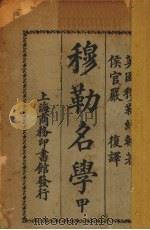 英國穆勒約翰著
侯官嚴 復譯
穆勒名學 甲
上海商務印書館發行